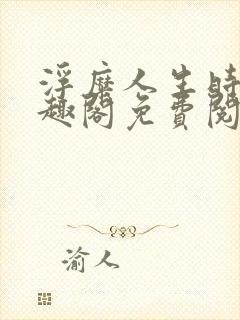 浮靡人生時
趣閣免費閱
渝人